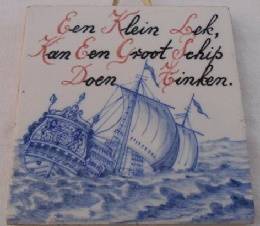 Een Klein Lek,
Kan Een Groot Schip
Doen Zinken.